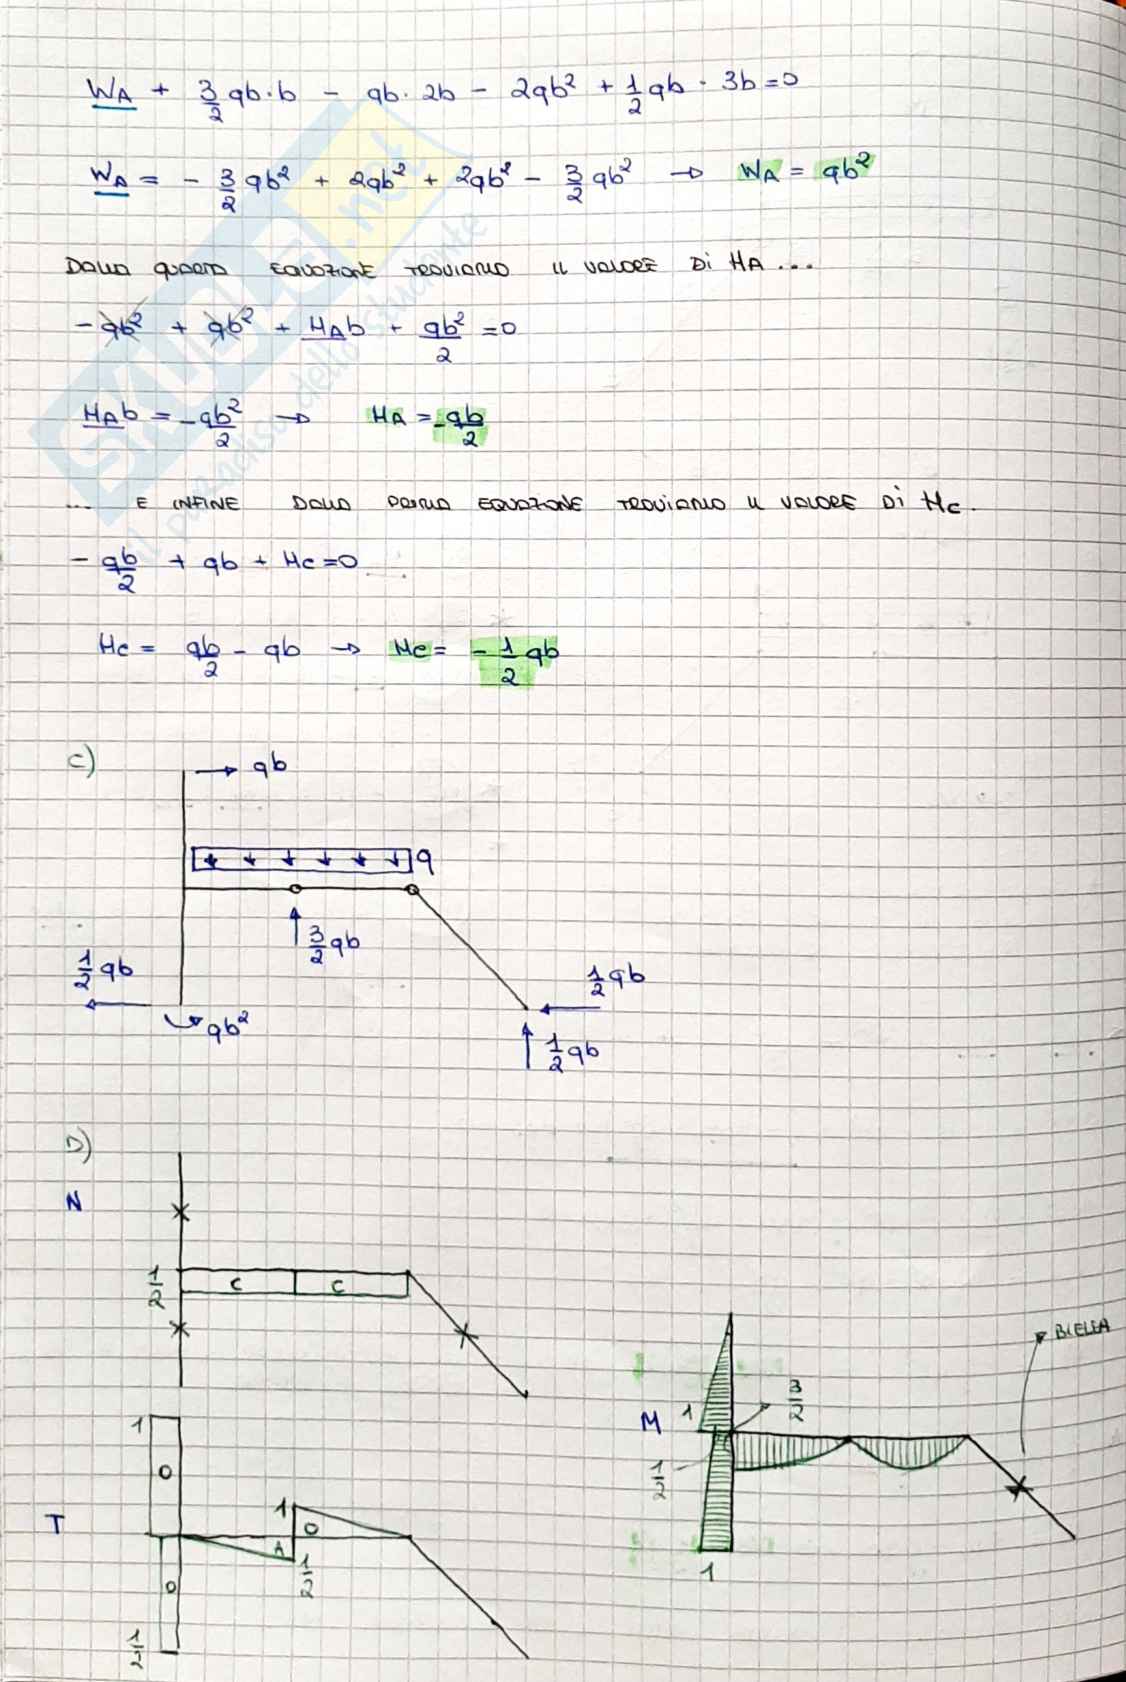 WA + 3/2 qb·b - qb·2b - 2qb² + 1/2 qb · 3b = 0
WA = - 3/2 qb² + 2qb² + 2qb² - 3/2 qb² → WA = qb²
DALLA QUARTA EQUAZIONE TROVIAMO IL VALORE DI HA ...
- qb² + qb² + HAb + qb²/2 = 0
HAb = - qb²/2 → HA = - qb/2
... E INFINE DALLA PRIMA EQUAZIONE TROVIAMO IL VALORE DI HC.
- qb/2 + qb + HC = 0
HC = qb/2 - qb → HC = - 1/2 qb
C)
qb
q
3/2 qb
1/2 qb
1/2 qb
qb²
1/2 qb
D)
N
1/2
C C
BIELLA
3/2
M 1
1/2
1
1
O
T
1
O
A
1/2
O
1/2
SKUOLA.net
il paradiso dello studente